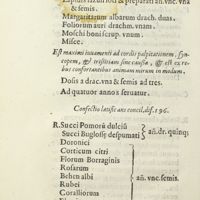 Lapidis lazuli loti & præparati añ. vnc. vna
& semis.
Margaritarum albarum drach. duas.
Foliorum auri drachm. vnam.
Moschi boni scrup. vnum.
Misce.
Est maximi iuuamenti ad cordis palpitationem, syn-
copem, & tristitiam sine causa, & est ex re-
bus confortantibus animam mirum in modum.
Dosis a drac. vna & semis ad tres.
Ad quatuor annos seruatur.
Confectio lætificans concil. dist. 196.
R. Succi Pomorũ dulciũ
Succi Buglossę despumati
añ. dr. quinq;
Doronici
Corticum citri
Florum Borraginis
Rosarum
Behen albi
Rubei
Coralliorum
añ. vnc. semis.